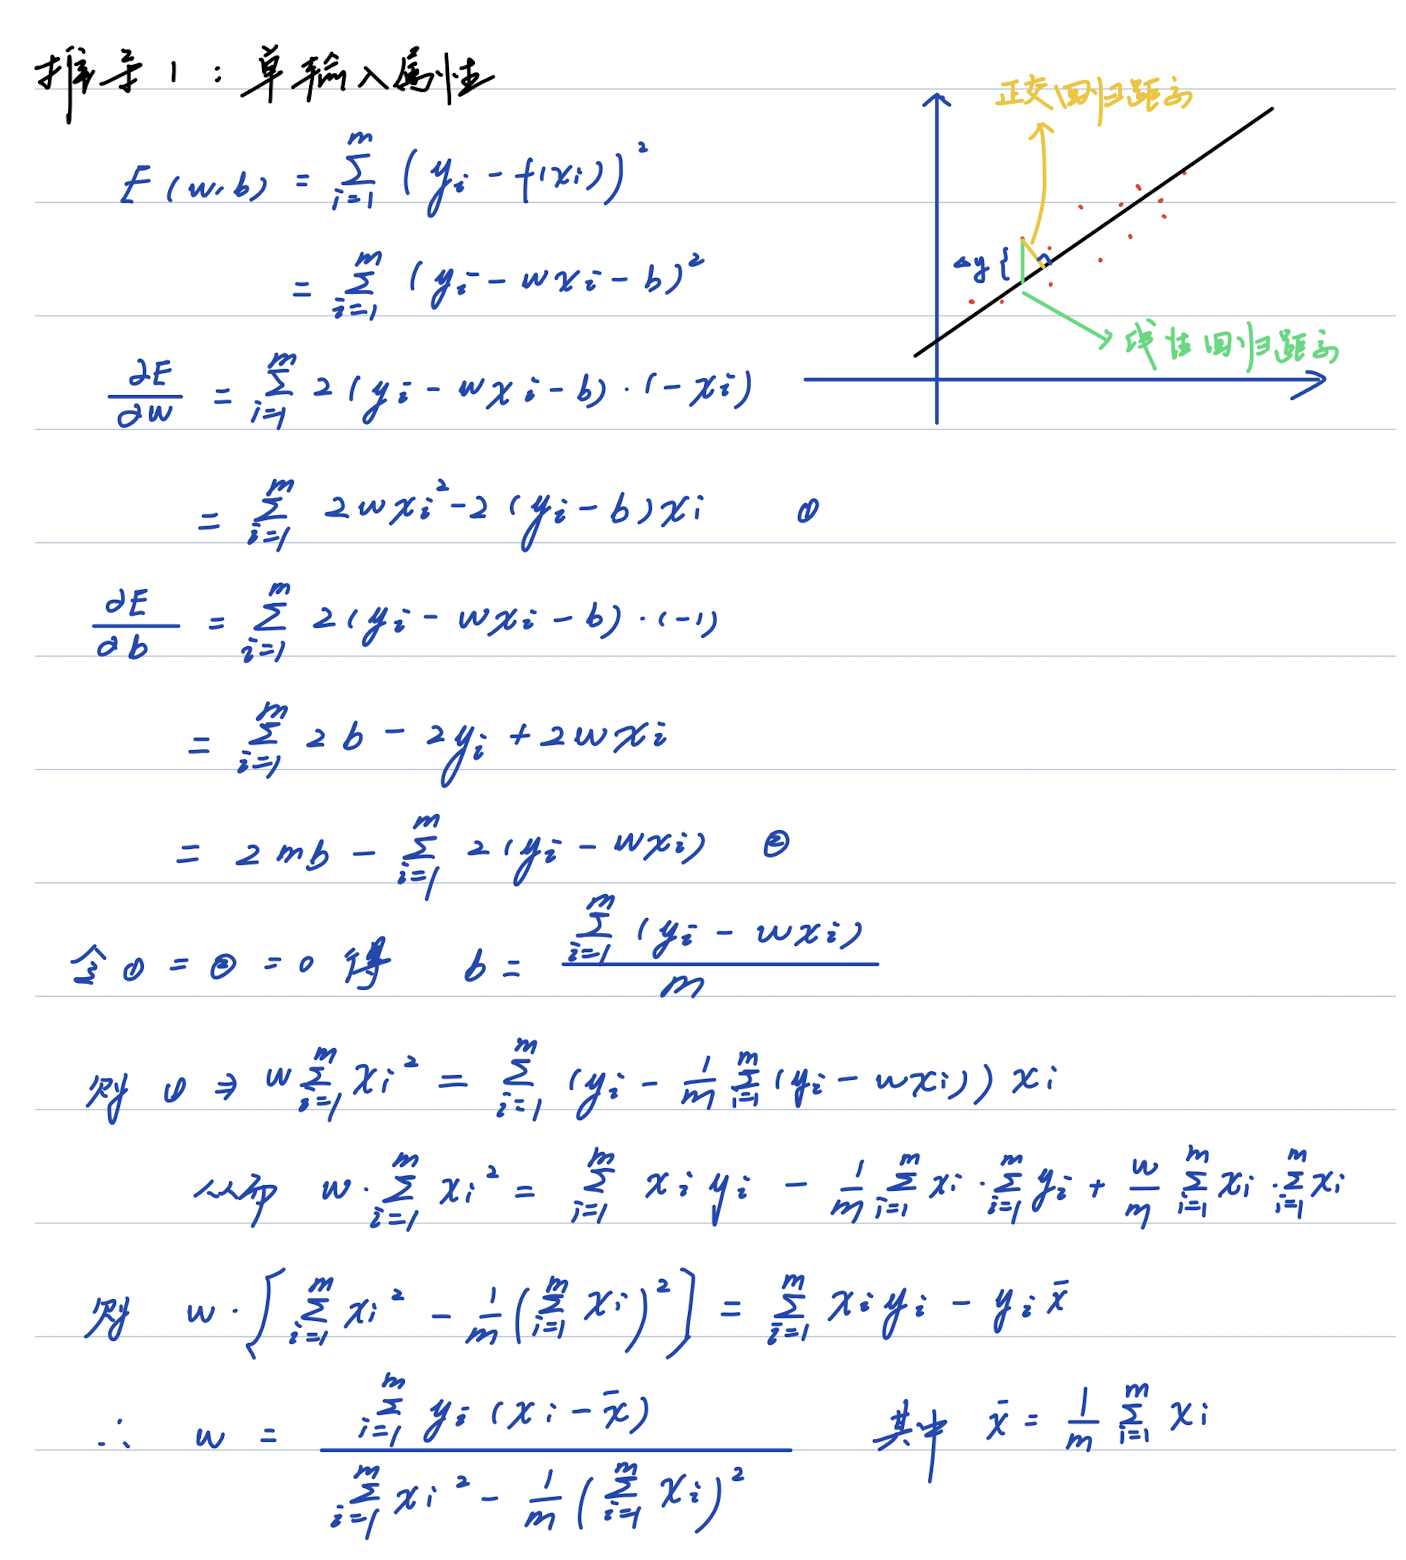 推导1：单输入属性
正交回归距离
E(w,b) = \sum_{i=1}^{m} (y_i - f(x_i))^2
= \sum_{i=1}^{m} (y_i - wx_i - b)^2
Δy {
线性回归距离
\frac{∂E}{∂w} = \sum_{i=1}^{m} 2(y_i - wx_i - b)·(-x_i)
= \sum_{i=1}^{m} 2wx_i^2 - 2(y_i - b)x_i ①
\frac{∂E}{∂b} = \sum_{i=1}^{m} 2(y_i - wx_i - b)·(-1)
= \sum_{i=1}^{m} 2b - 2y_i + 2wx_i
= 2mb - \sum_{i=1}^{m} 2(y_i - wx_i) ②
令①=②=0得 b = \frac{\sum_{i=1}^{m} (y_i - wx_i)}{m}
则 ① ⇒ w\sum_{i=1}^{m} x_i^2 = \sum_{i=1}^{m} (y_i - \frac{1}{m}\sum_{i=1}^{m}(y_i - wx_i))x_i
w·\sum_{i=1}^{m} x_i^2 = \sum_{i=1}^{m} x_i y_i - \frac{1}{m}\sum_{i=1}^{m} x_i·\sum_{i=1}^{m} y_i + \frac{w}{m}\sum_{i=1}^{m} x_i·\sum_{i=1}^{m} x_i
则 w·[\sum_{i=1}^{m} x_i^2 - \frac{1}{m}(\sum_{i=1}^{m} x_i)^2] = \sum_{i=1}^{m} x_i y_i - y_i \bar{x}
∴ w = \frac{\sum_{i=1}^{m} y_i(x_i - \bar{x})}{\sum_{i=1}^{m} x_i^2 - \frac{1}{m}(\sum_{i=1}^{m} x_i)^2} 其中 \bar{x} = \frac{1}{m}\sum_{i=1}^{m} x_i